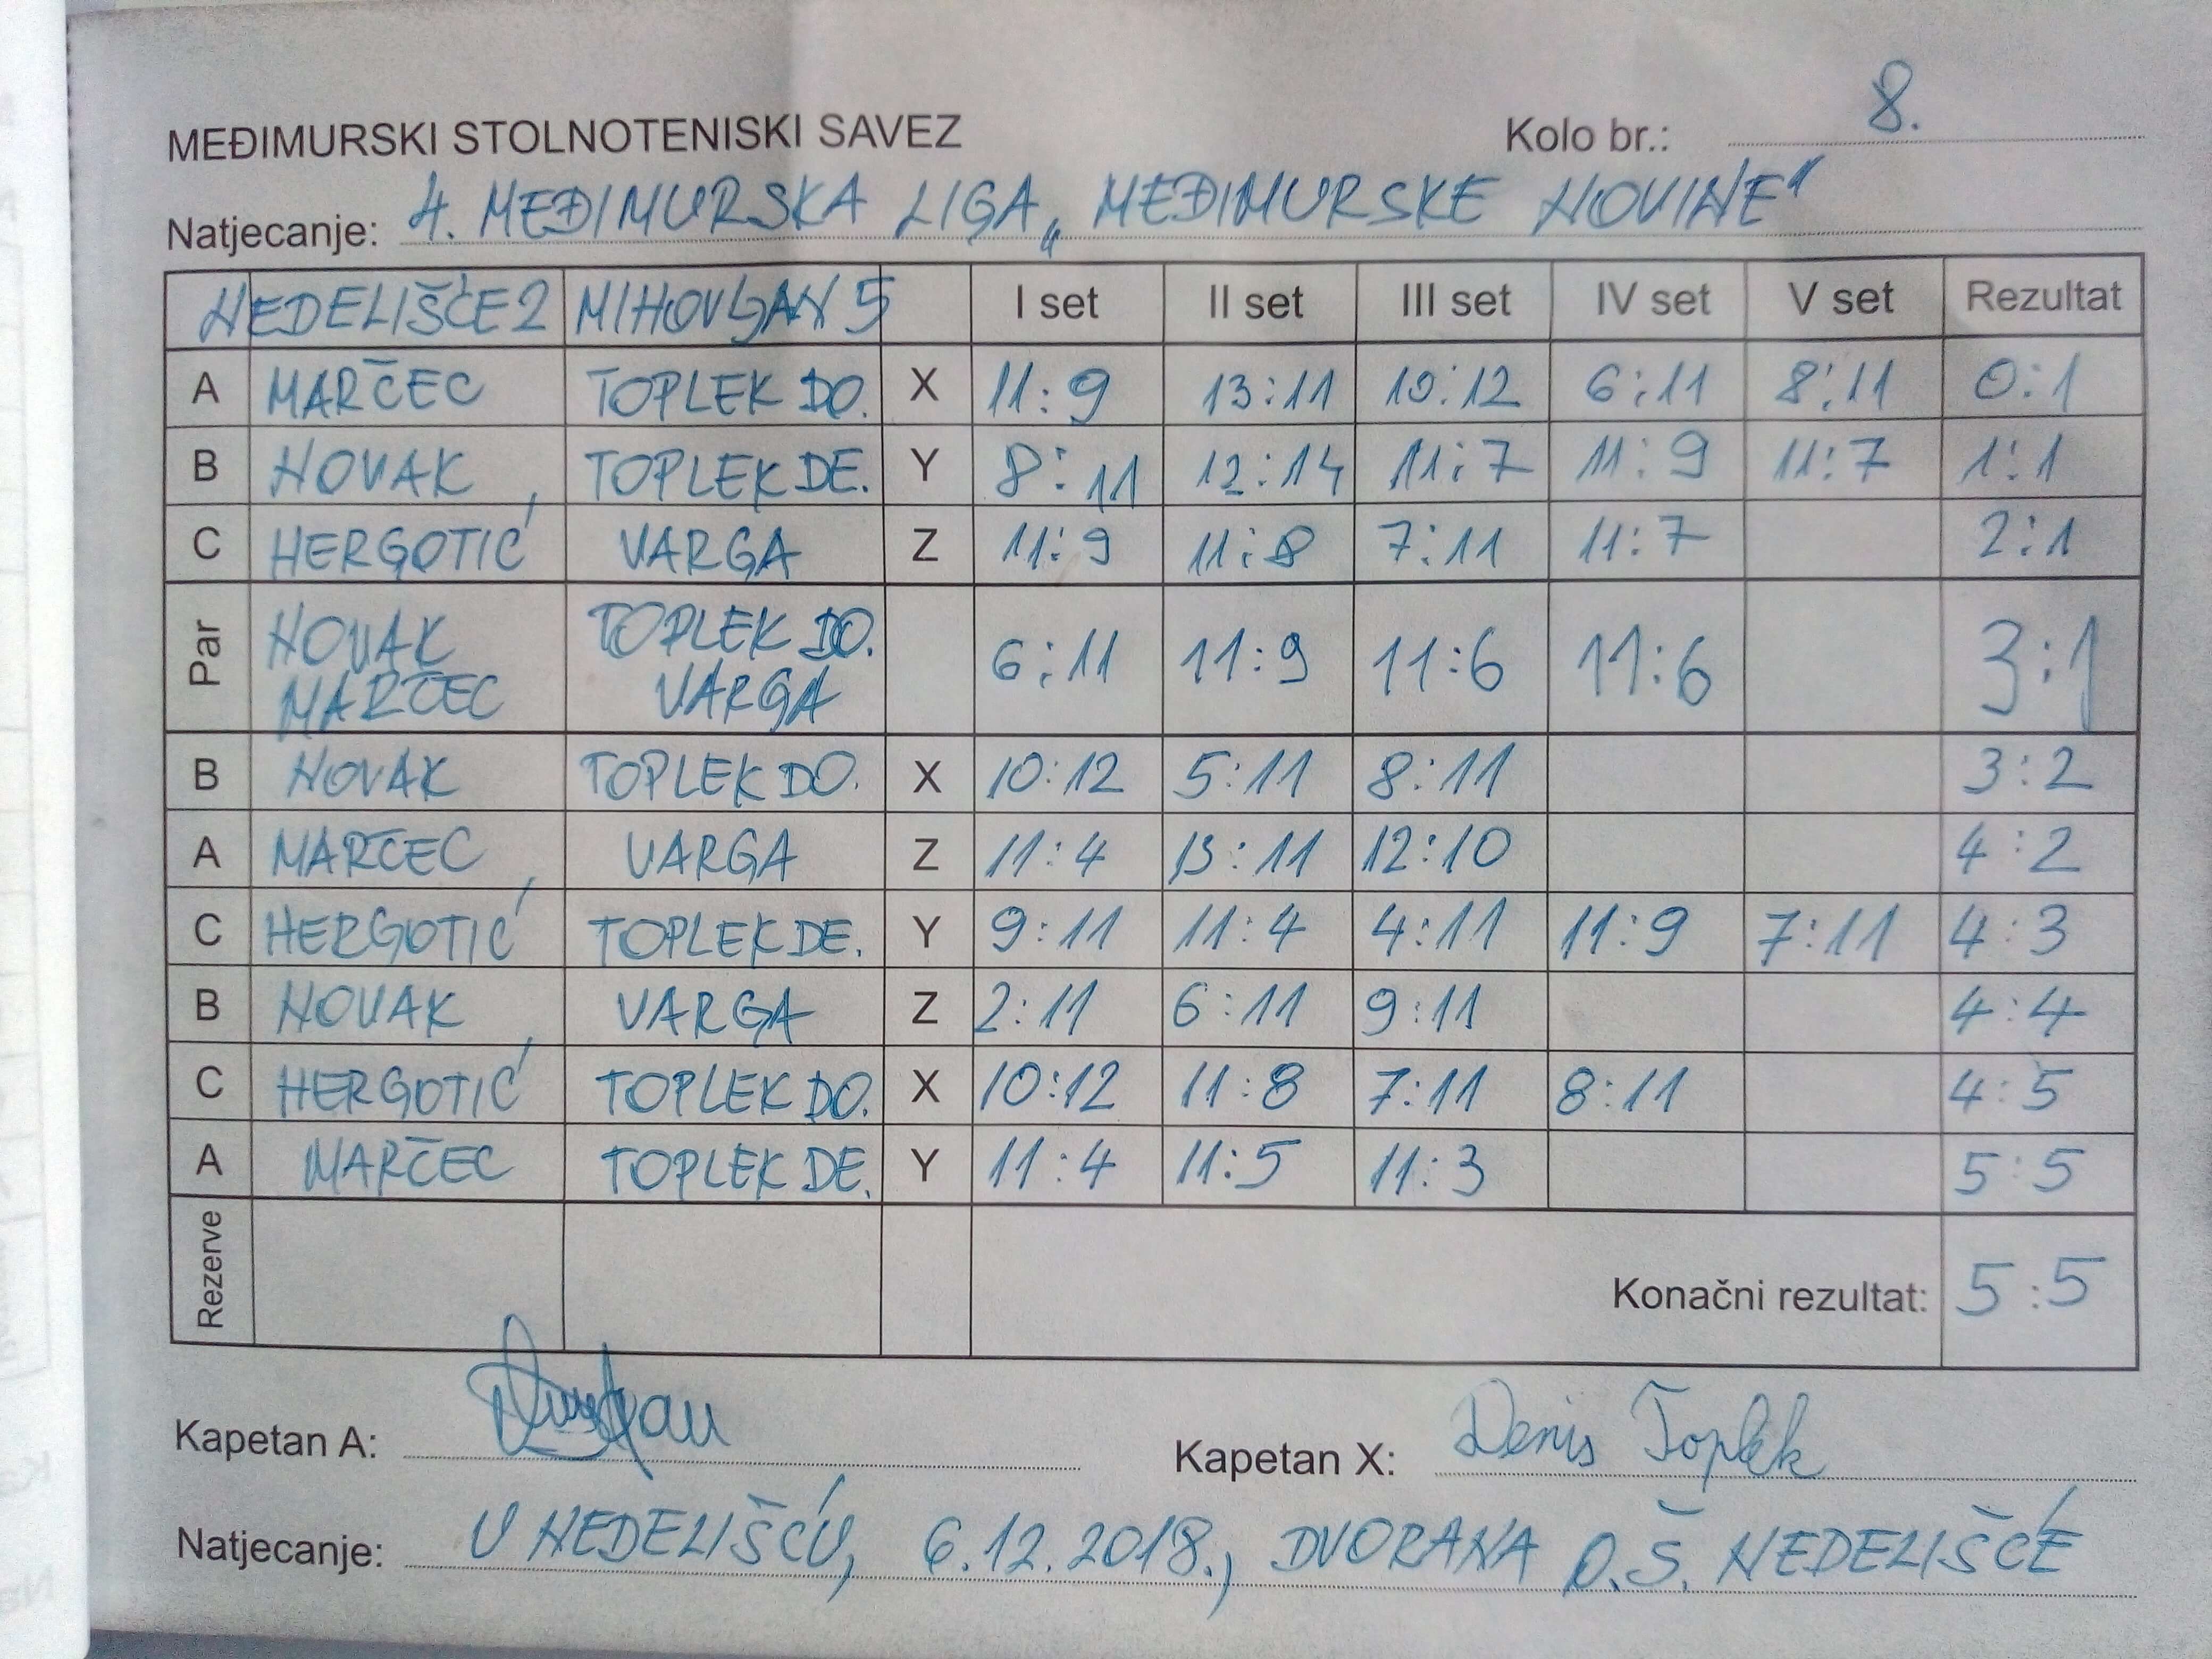 MEĐIMURSKI STOLNOTENISKI SAVEZ Kolo br.: 8.
Natjecanje: 4. MEĐIMURSKA LIGA „MEĐIMURSKE NOVINE"
NEDELIŠĆE 2 MIHOVLJAN 5 I set II set III set IV set V set Rezultat
A MARČEC TOPLEK DO. X 11:9 13:11 10:12 6:11 8:11 0:1
B NOVAK TOPLEK DE. Y 8:11 12:14 11:7 11:9 11:7 1:1
C HERGOTIĆ VARGA Z 11:9 11:8 7:11 11:7 2:1
Par NOVAK MARČEC TOPLEK DO. VARGA 6:11 11:9 11:6 11:6 3:1
B NOVAK TOPLEK DO. X 10:12 5:11 8:11 3:2
A MARČEC VARGA Z 11:4 13:11 12:10 4:2
C HERGOTIĆ TOPLEK DE. Y 9:11 11:4 4:11 11:9 7:11 4:3
B NOVAK VARGA Z 2:11 6:11 9:11 4:4
C HERGOTIĆ TOPLEK DO. X 10:12 11:8 7:11 8:11 4:5
A MARČEC TOPLEK DE. Y 11:4 11:5 11:3 5:5
Rezerve Konačni rezultat: 5:5
Kapetan A: Kapetan X: Denis Toplek
Natjecanje: U NEDELIŠĆU, 6.12.2018., DVORANA O.Š. NEDELIŠĆE